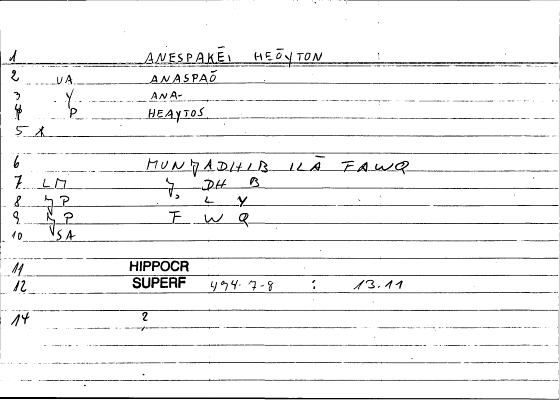 1 ANESPAKĒI HEŌYTON
2 VA ANASPAŌ
3 Y ANA-
4 P HEAYTOS
5 1
6 MUNǦADHIB ILĀ FAWQ
7 LM Ǧ DH B
8 P L Y
9 P F W Q
10 SA
11 HIPPOCR
12 SUPERF 494.7-8 : 13.11
14 2